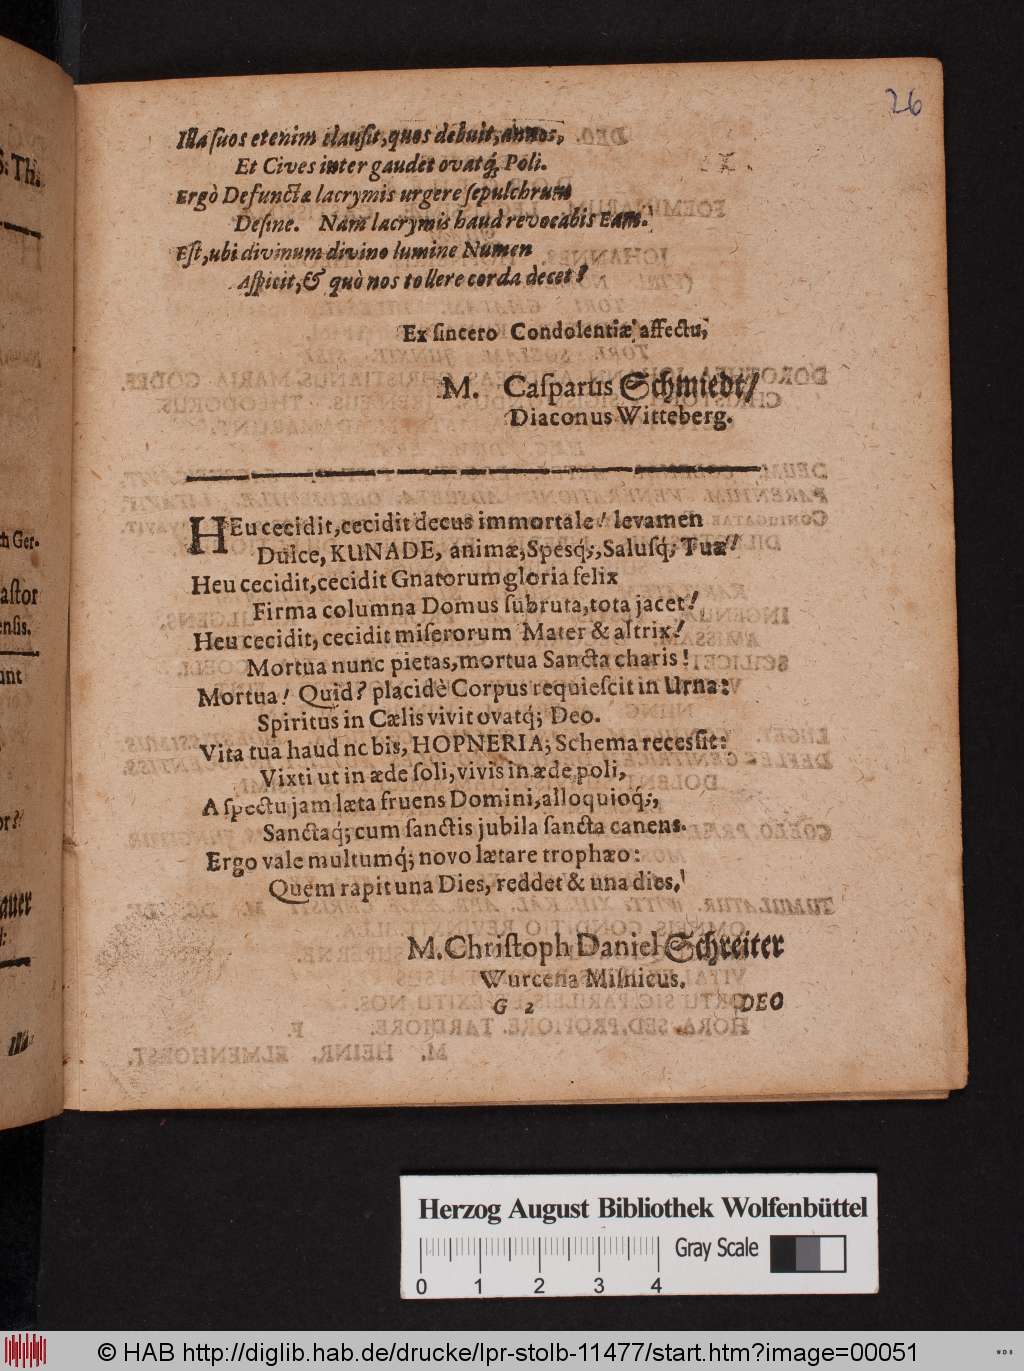 26
Illa ſuos etenim clauſit, quos debuit, annos,
Et Cives inter gaudet ovatq́; Poli.
Ergò Defunctæ lacrymis urgere ſepulchrum
Deſine. Nam lacrymis haud revocabis Eam.
Eſt, ubi divinum divino lumine Numen
Aſpicit, & quò nos tollere corda decet!
Ex ſincero Condolentiæ affectu,
M. Caſparus Schmiedt/
Diaconus Witteberg.
HEu cecidit, cecidit decus immortale! levamen
Dulce, KUNADE, animæ, Spesq́;, Saluſq́; Tuæ!
Heu cecidit, cecidit Gnatorum gloria felix
Firma columna Domus ſubruta, tota jacet!
Heu cecidit, cecidit miſerorum Mater & altrix!
Mortua nunc pietas, mortua Sancta charis!
Mortua! Quid? placidè Corpus requieſcit in Urna:
Spiritus in Cælis vivit ovatq́; Deo.
Vita tua haud nobis, HOPNERIA; Schema receſſit:
Vixti ut in æde ſoli, vivis in æde poli,
Aſpectu jam læta fruens Domini, alloquioq́;,
Sanctaq́; cum ſanctis jubila ſancta canens.
Ergo vale multumq́; novo lætare trophæo:
Quem rapit una Dies, reddet & una dies.
M. Chriſtoph Daniel Schreiter
Wurcena Miſnicus.
G 2 DEO
ch Ger-
aſtor
enſis.
unt
Herzog August Bibliothek Wolfenbüttel
Gray Scale
0 1 2 3 4
© HAB http://diglib.hab.de/drucke/lpr-stolb-11477/start.htm?image=00051